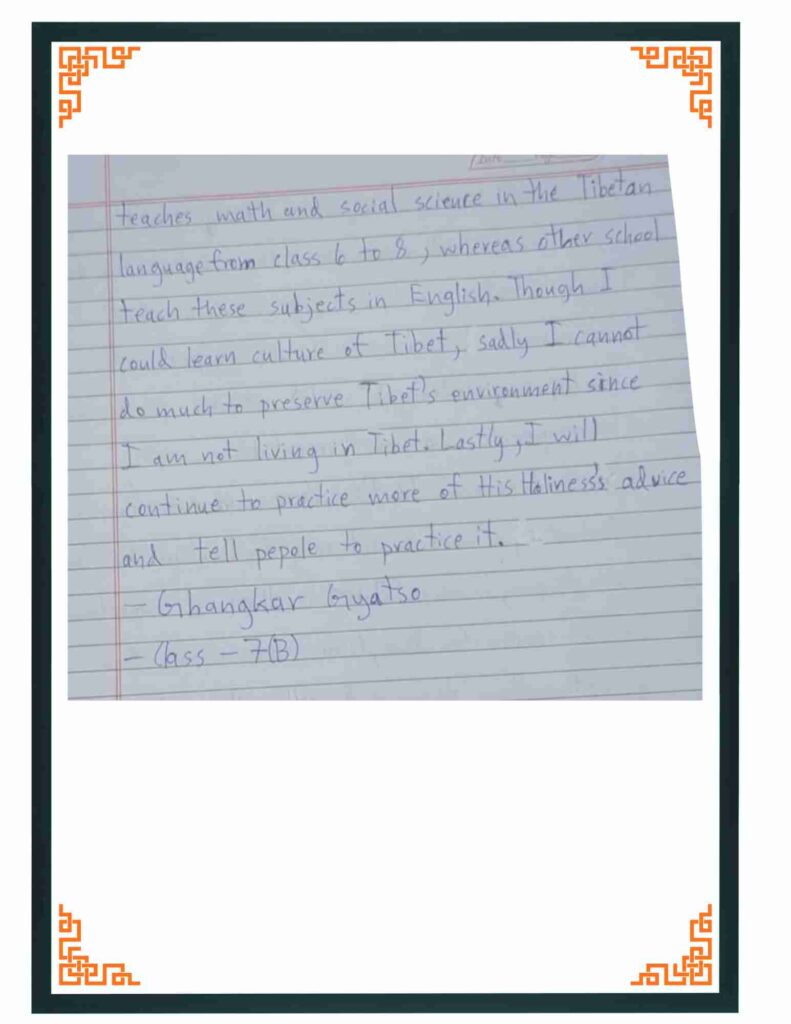 teaches math and social science in the Tibetan
language from class 6 to 8, whereas other school
teach these subjects in English. Though I
could learn culture of Tibet, sadly I cannot
do much to preserve Tibet's environment since
I am not living in Tibet. Lastly, I will
continue to practice more of His Holiness's advice
and tell pepole to practice it.
- Ghangkar Gyatso
- Class - 7(B)